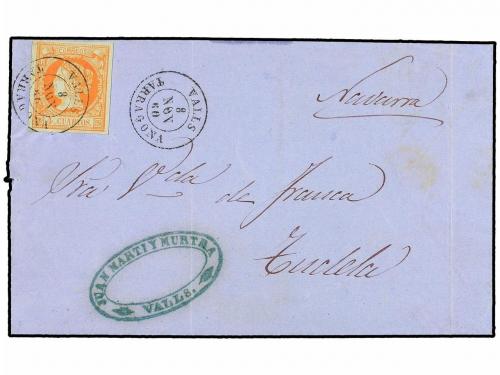 CORREOS
4 CUARTOS.
VALLS
8
NOV
60
TARRAGONA
VALLS
8
NOV
60
TARRAGONA
Navarra
Sra Vda de Franca
Tudela
JUAN MARTI Y MURTRA
VALLS.